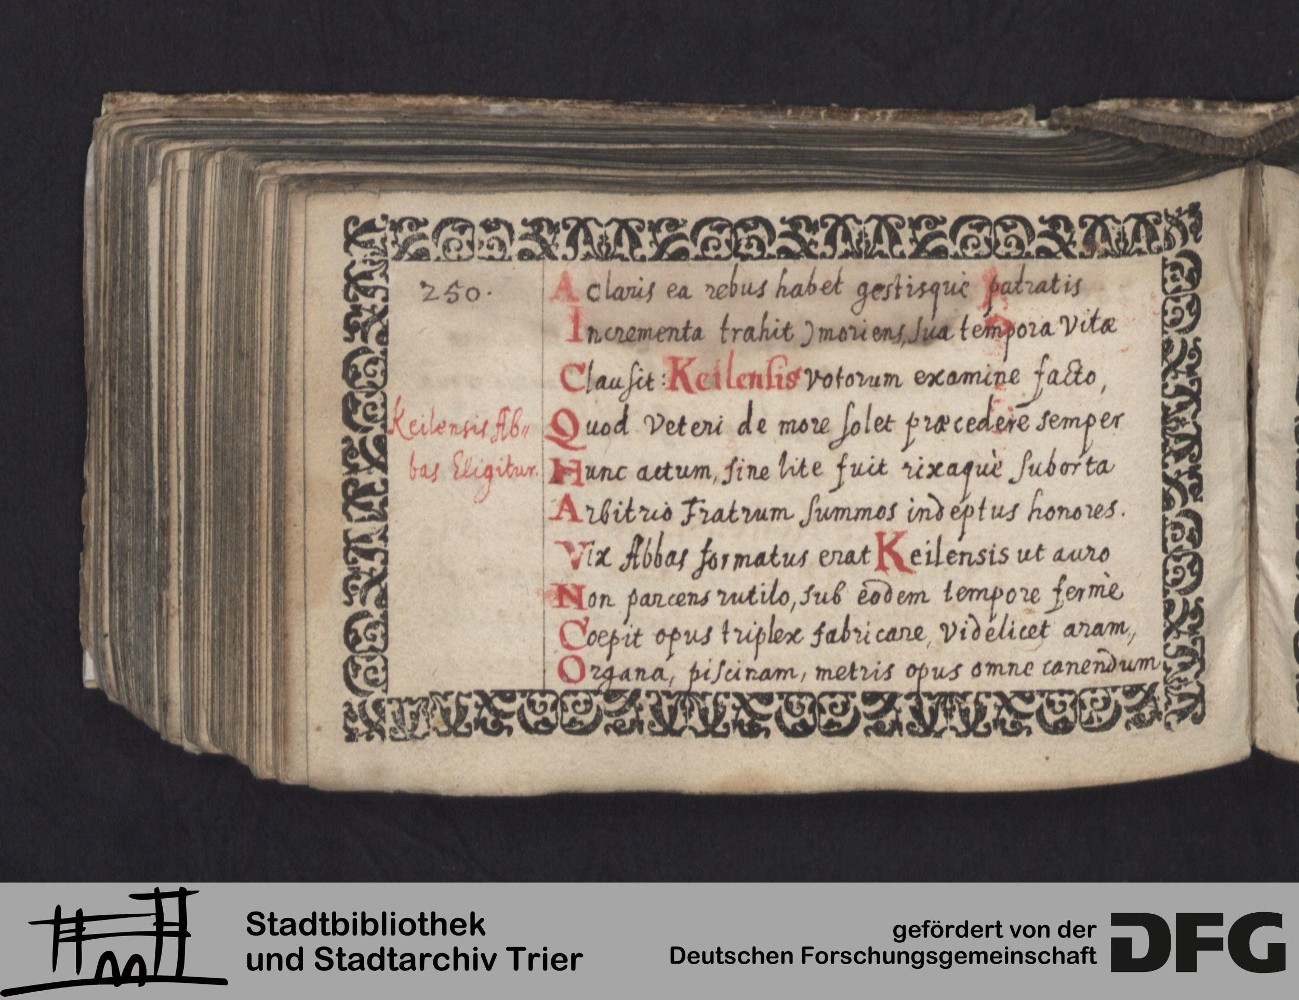 250.
A claris ea rebus habet gestisquè patratis
Incrementa trahit; moriens, sua tempora Vitæ
Clausit: Keilensis votorum examine facto,
Quod Veteri de more solet præcedere semper
Keilensis Ab„
Hunc actum, sine lite fuit rixaquè suborta
bas Eligitur.
Arbitriò Fratrum summos indeptus honores.
Vix Abbas formatus erat Keilensis ut auro
Non parcens rutilo, sub eôdem tempore fermè
Coepit opus triplex fabricare, Videlicet aram,
Organa, piscinam, metris opus omne canendum
Stadtbibliothek
und Stadtarchiv Trier
gefördert von der
Deutschen Forschungsgemeinschaft
DFG